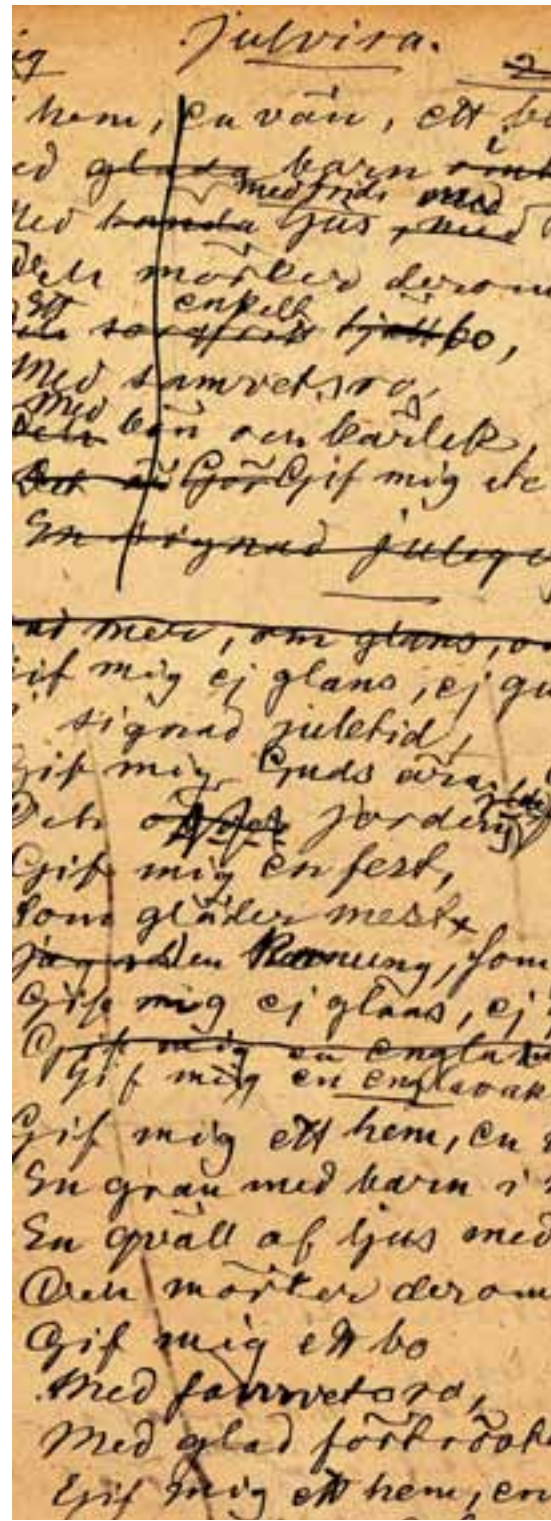 ig Julvisa. 2
hem, en vän, ett b
ed glada barn i
med frids med
Med ljus, med
Och mörker derom
Ett enkelt
bo,
Med samvetsro,
Med
bön och kärlek,
Gör Gif mig
En signad juleq
ad mer, om glans, o
Gif mig ej glans, ej gu
signad juletid,
Gif mig Guds ära
Och jorden
Gif mig en fest,
Som gläder mest
Den Konung, som
Gif mig ej glans, ej
Gif mig en engla
Gif mig en englavak
Gif mig ett hem, en
En gran med barn i
En qväll af ljus med
Och mörker derom
Gif mig ett bo
Med samvetsro,
Med glad förtröst
Gif mig ett hem, en